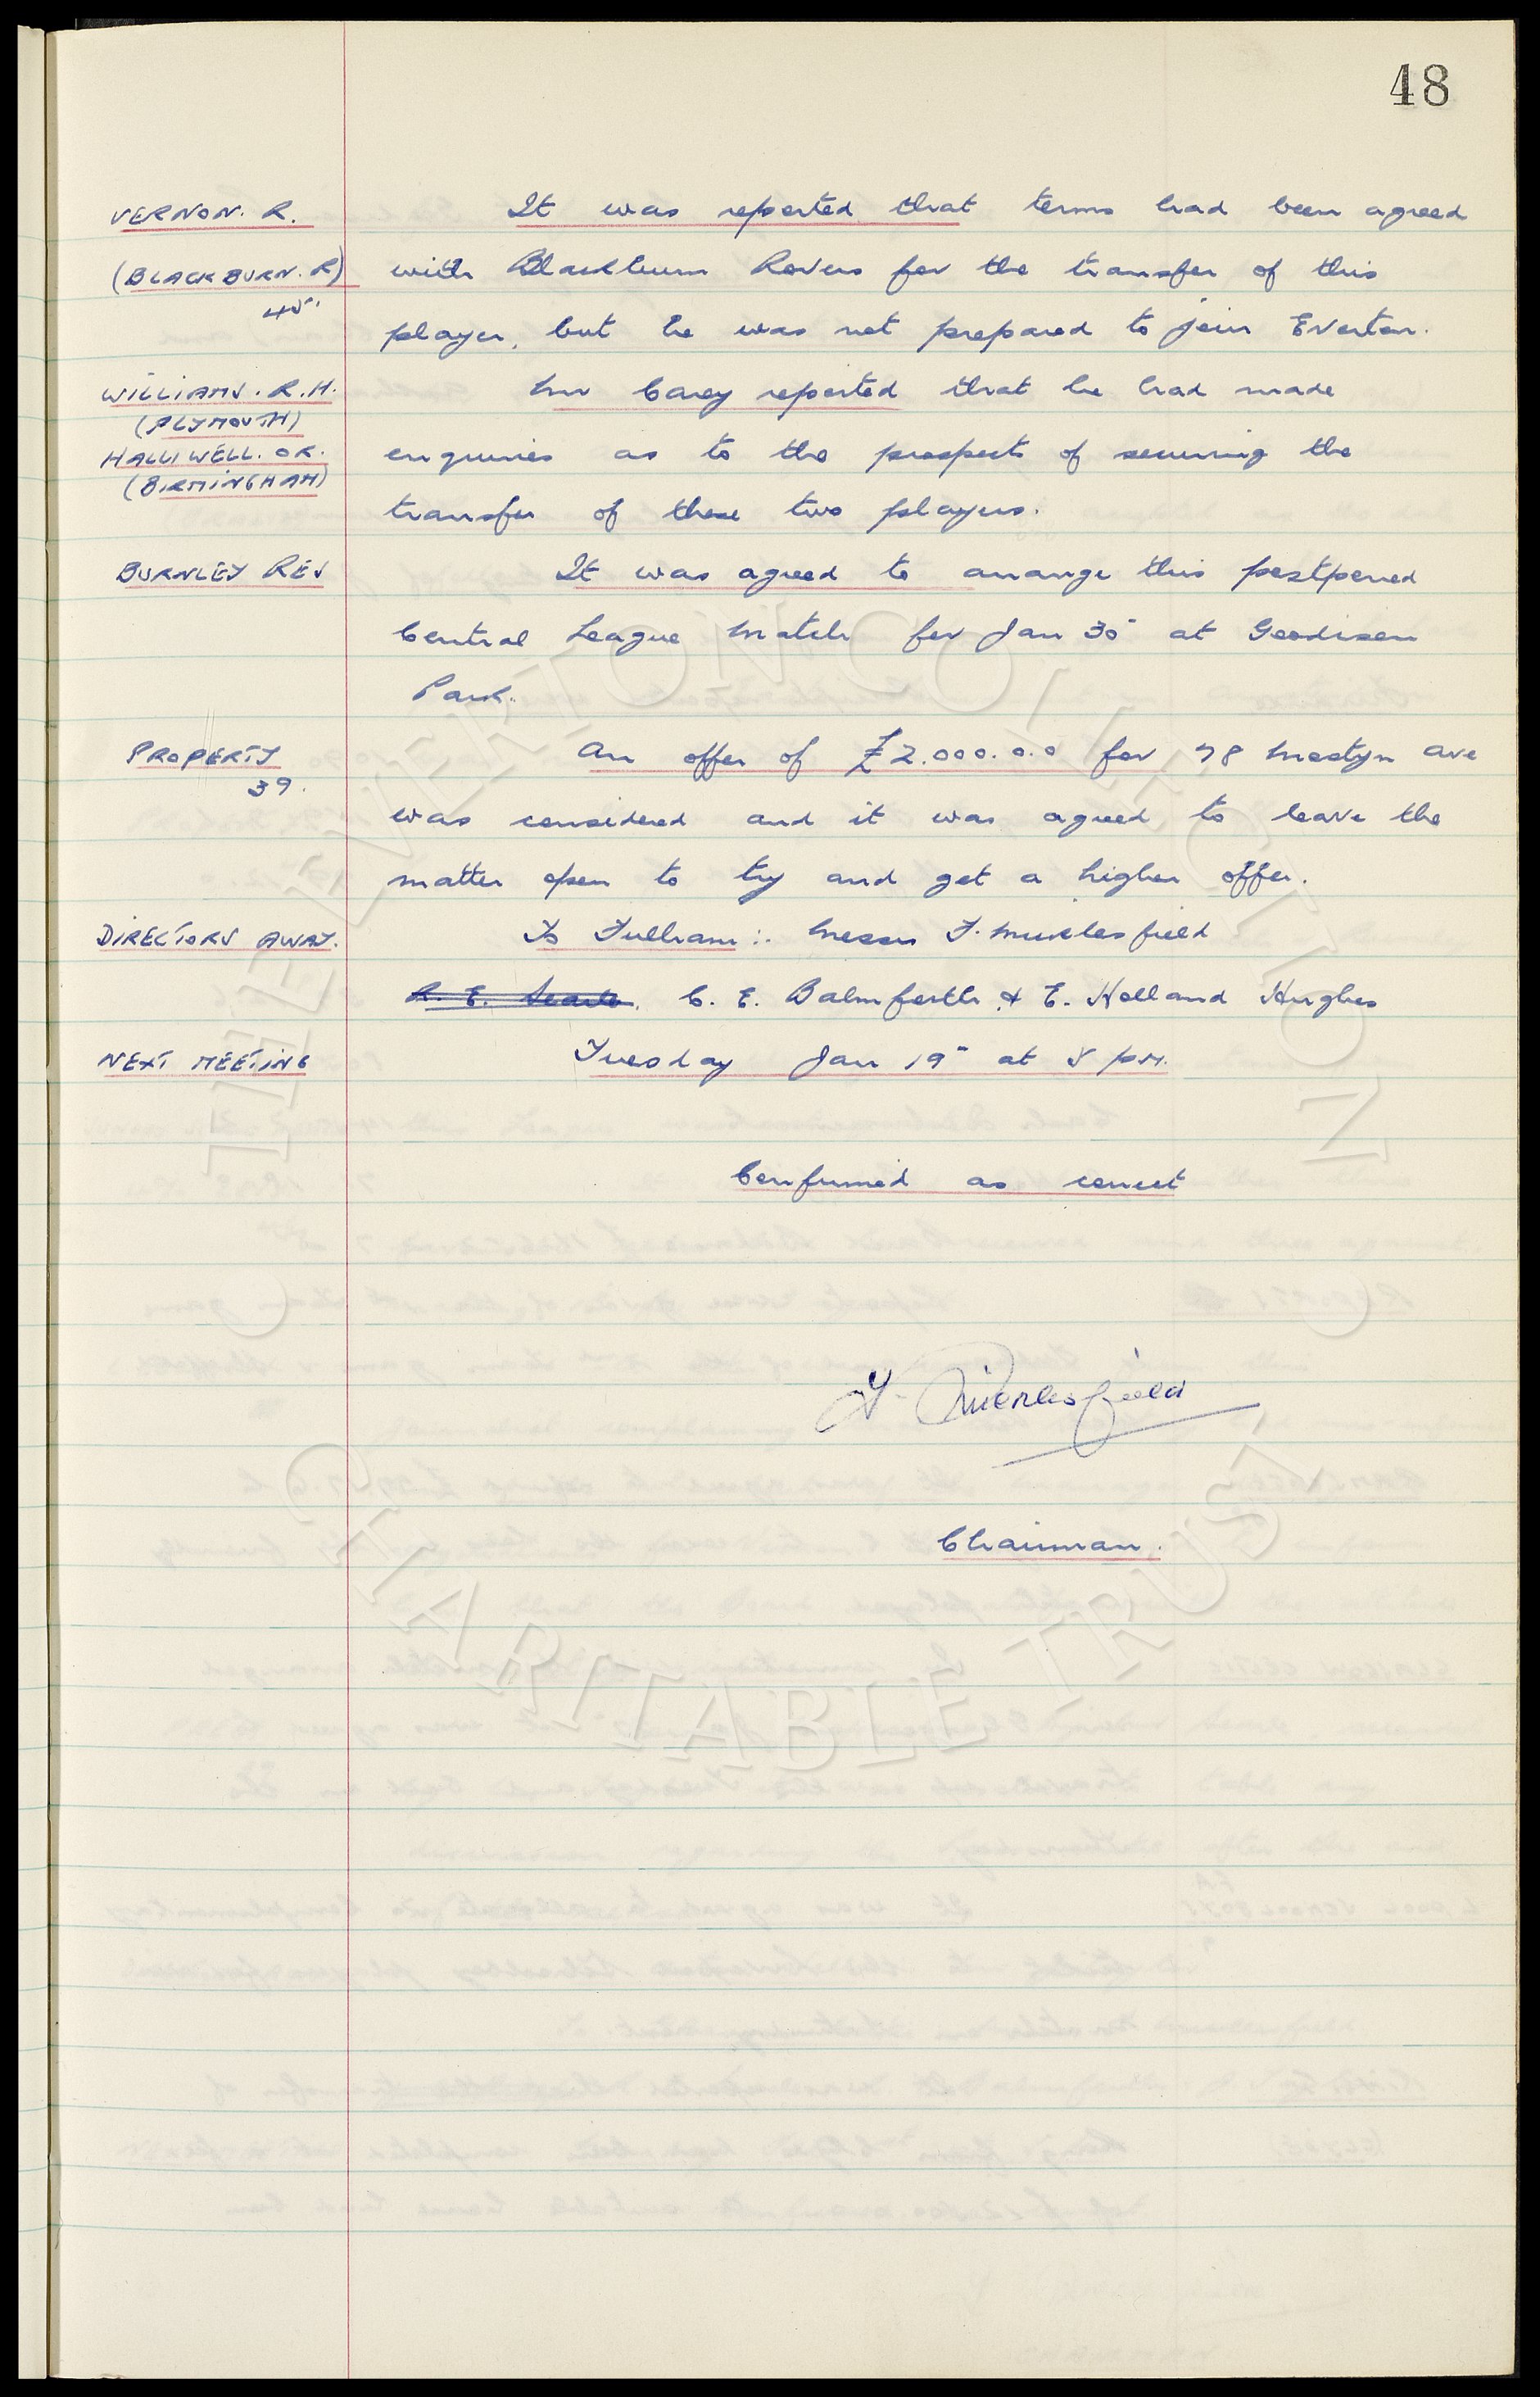 48
VERNON. R. It was reported that terms had been agreed
(BLACKBURN. R) with Blackburn Rovers for the transfer of this
45.
player, but he was not prepared to join Everton.
WILLIAMS. R. H. Mr Carey reported that he had made
(PLYMOUTH)
HALLIWELL. OR. enquiries as to the prospects of securing the
(BIRMINGHAM)
transfer of these two players.
BURNLEY RES It was agreed to arrange this postponed
Central League Match for Jan 30" at Goodison
Park.
PROPERTY An offer of £2.000.0.0 for 78 Mostyn Ave
39.
was considered and it was agreed to leave the
matter open to try and get a higher offer.
DIRECTORS AWAY. To Fulham :. Messrs F. Micklesfield
R. E. Searle, C. E. Balmforth & E. Holland Hughes
NEXT MEETING Tuesday Jan 19" at 5 p.m.
Confirmed as correct
F. Micklesfield
Chairman.
THE EVERTON COLLECTION
CHARITABLE TRUST